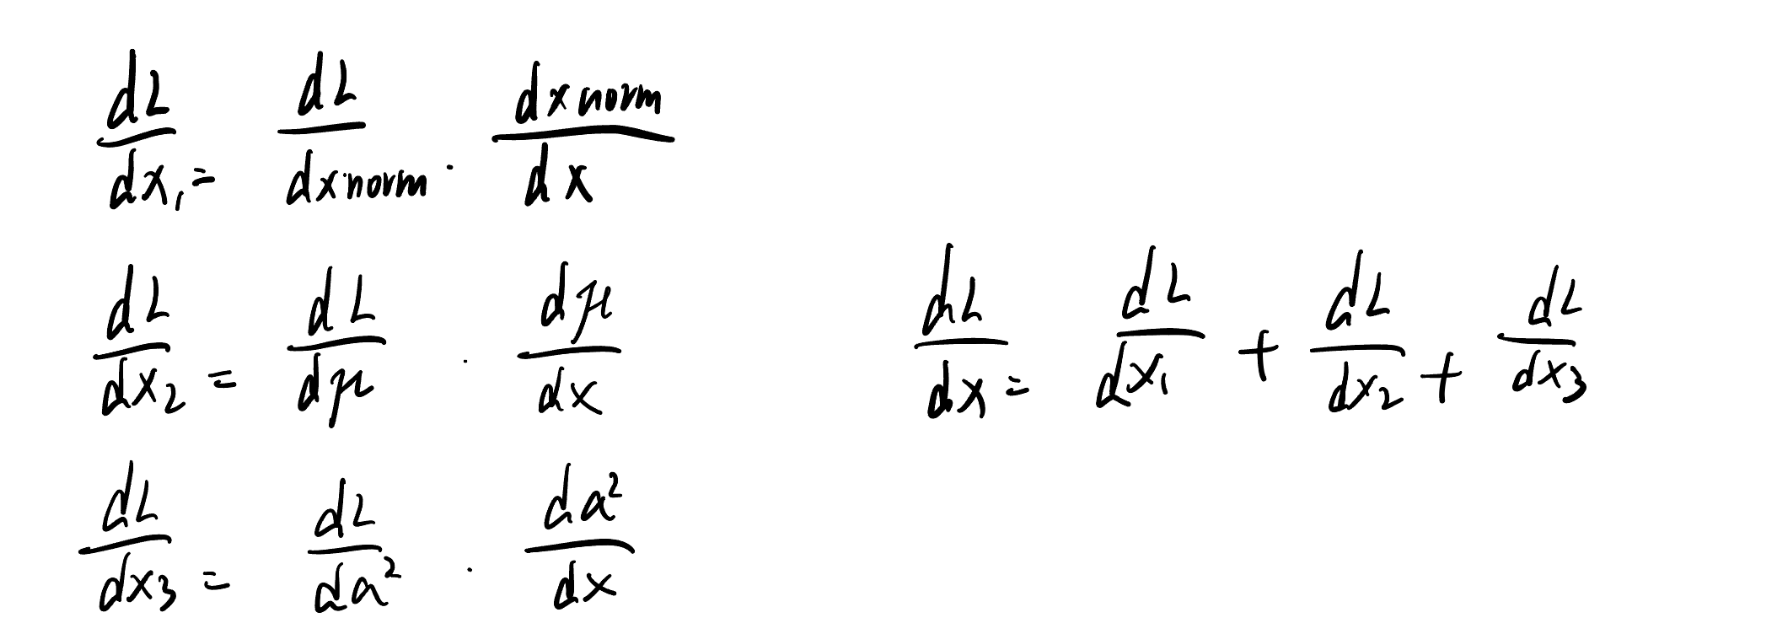 dL/dx₁ = dL/dxnorm · dxnorm/dx
dL/dx₂ = dL/dμ · dμ/dx
dL/dx₃ = dL/da² · da²/dx
dL/dx = dL/dx₁ + dL/dx₂ + dL/dx₃